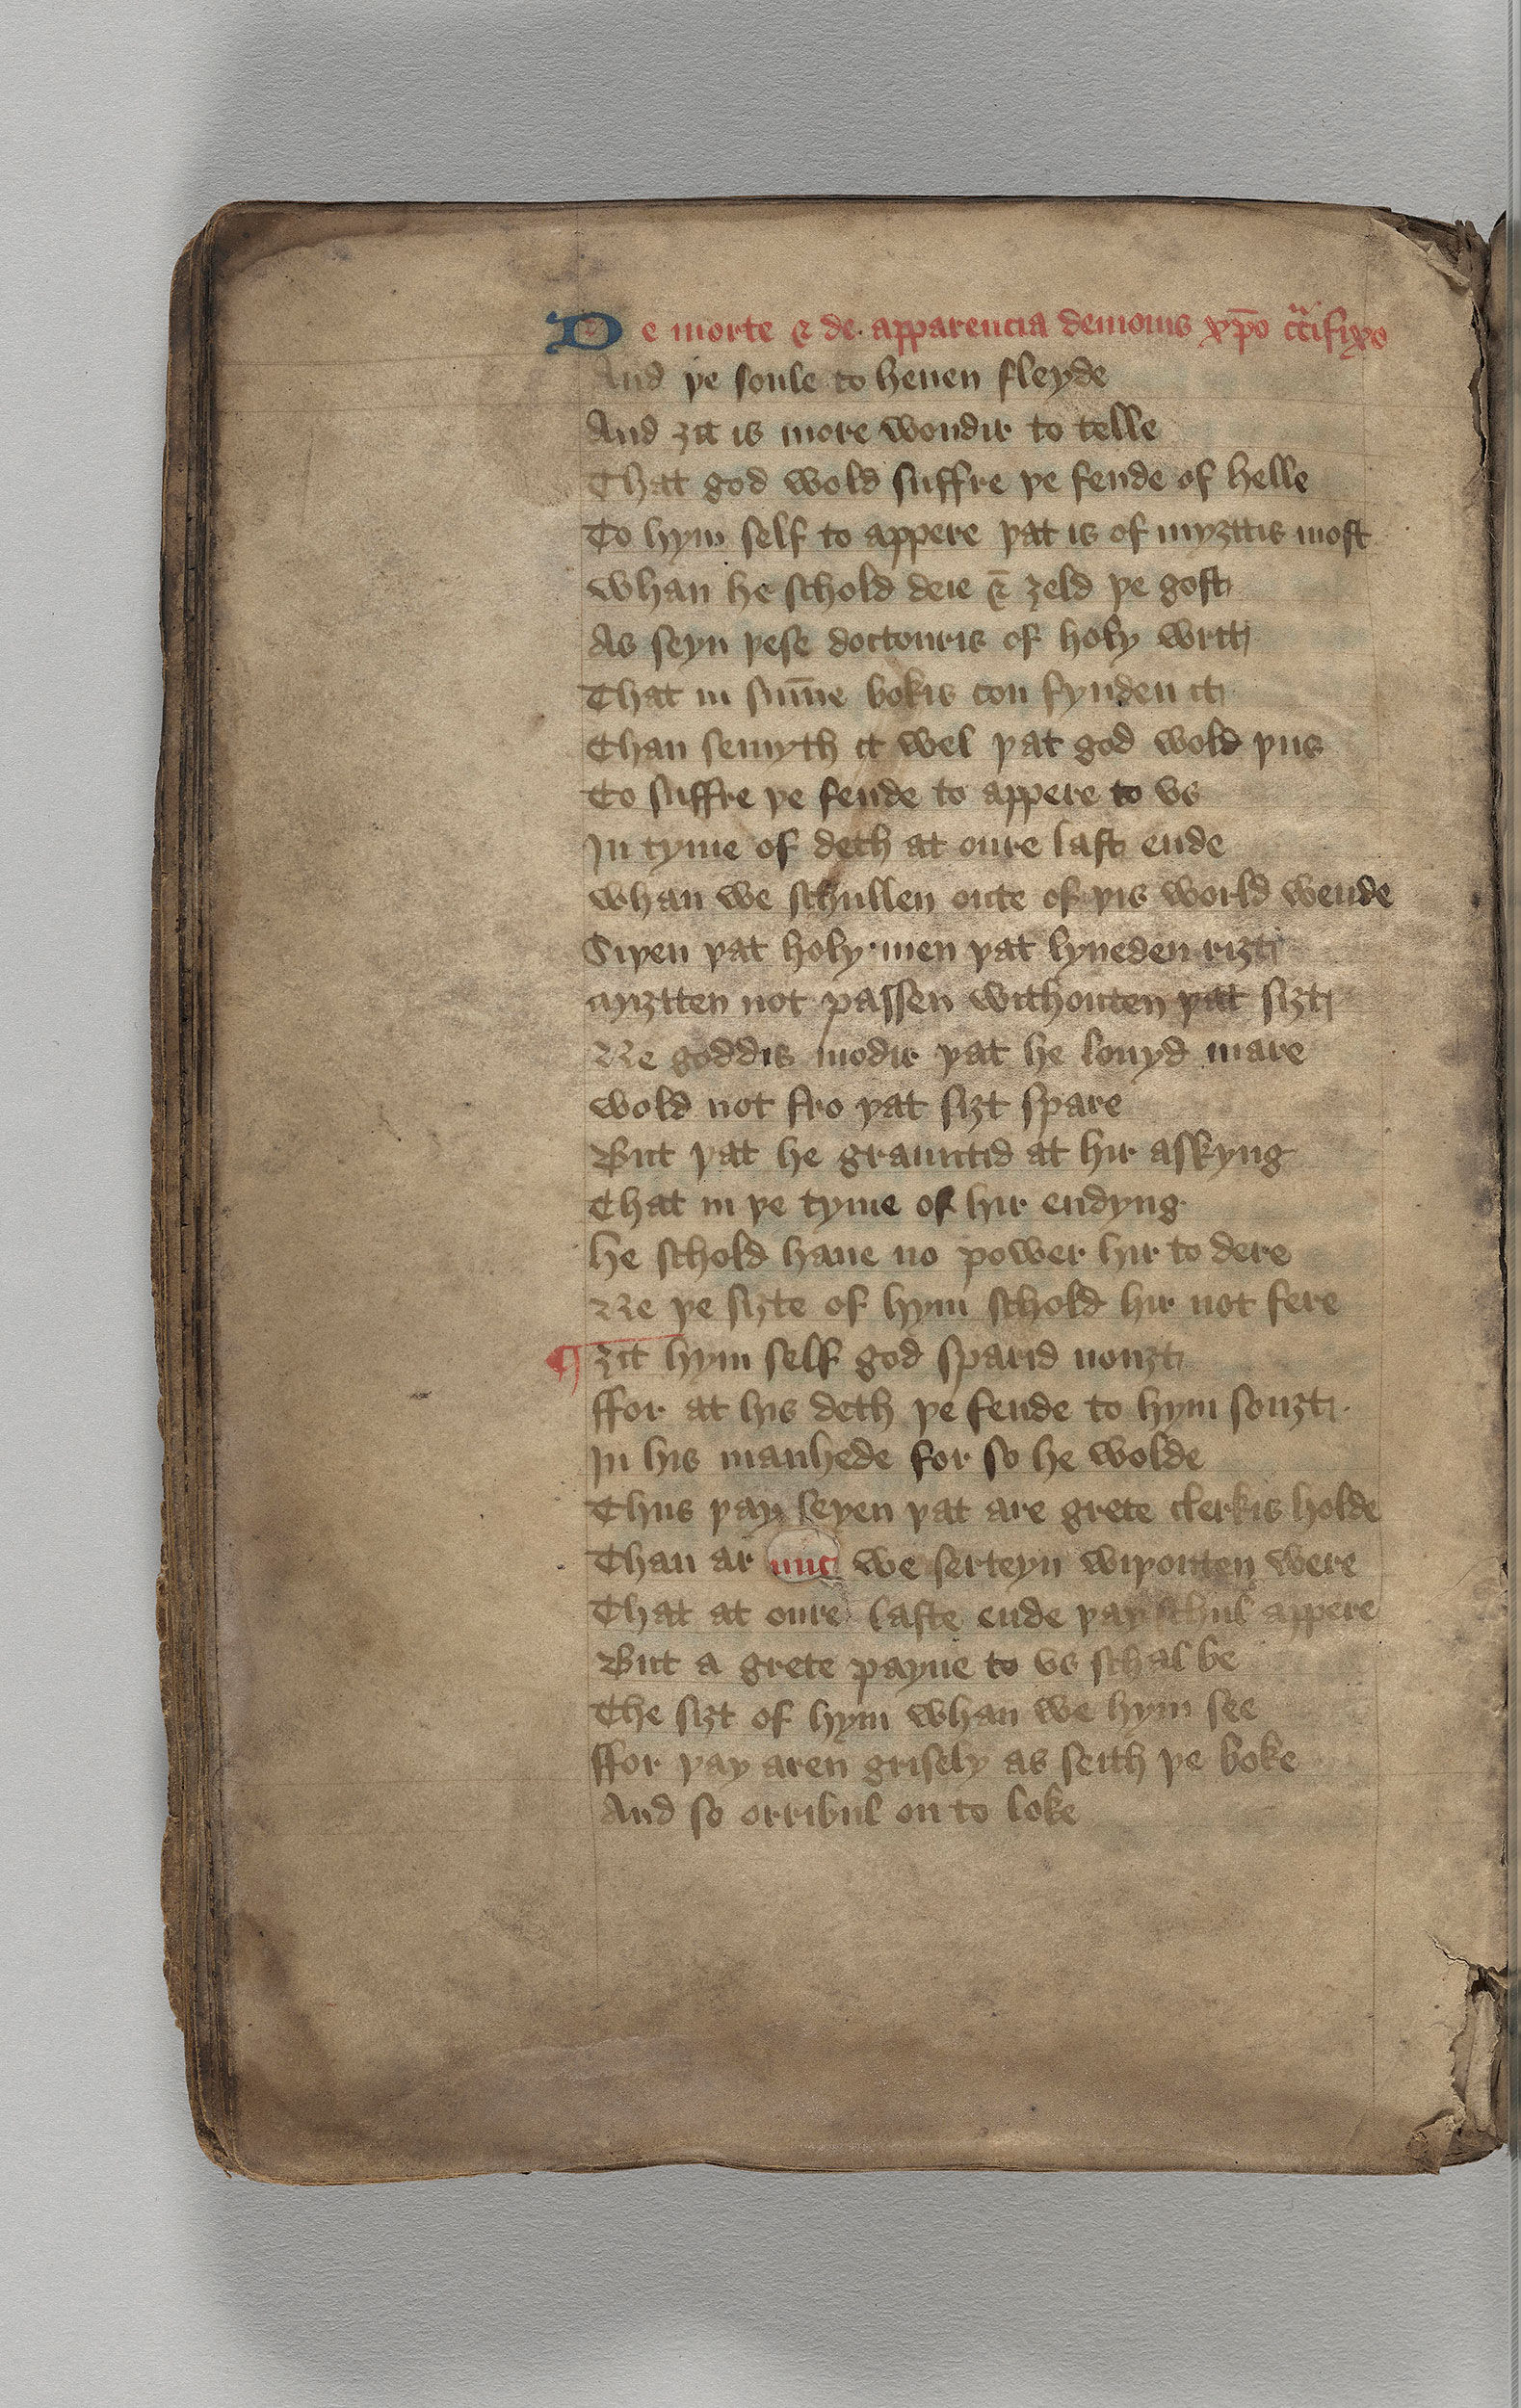 De morte & de apparencia demonis xp̄o cͣcifixo
And þe soule to heuen fleyde
And ȝit is more wondir to telle
That god wold suffre þe fende of helle
To hym self to appere þat is of myȝttis most
whan he schold deie & ȝeld þe gost
As seyn þese doctouris of holy writt
That in sum̄e bokis con fynden it
Than semyth it wel þat god wold þus
To suffre þe fende to appere to vs
In tyme of deth at oure last ende
whan we schullen oute of þis world wende
Siþen þat holy men þat lyueden riȝt
myȝtten not passen withouten þat siȝt
Ne goddis modir þat he louyd mare
wold not fro þat siȝt spare
But þat he grauntid at hir askyng
That in þe tyme of hir endyng
he schold haue no power hir to dere
Ne þe siȝte of hym schold hir not fere
¶ ȝit hym self god sparid nouȝt
ffor at his deth þe fende to hym souȝt
In his manhede for so he wolde
Thus þay seyen þat are grete clerkis holde
Than ar we serteyn wiþouten were
That at oure laste ende þay schul appere
But a grete payne to vs schal be
The siȝt of hym whan we hym see
ffor þay aren grisely as seith þe boke
And so orribul on to loke